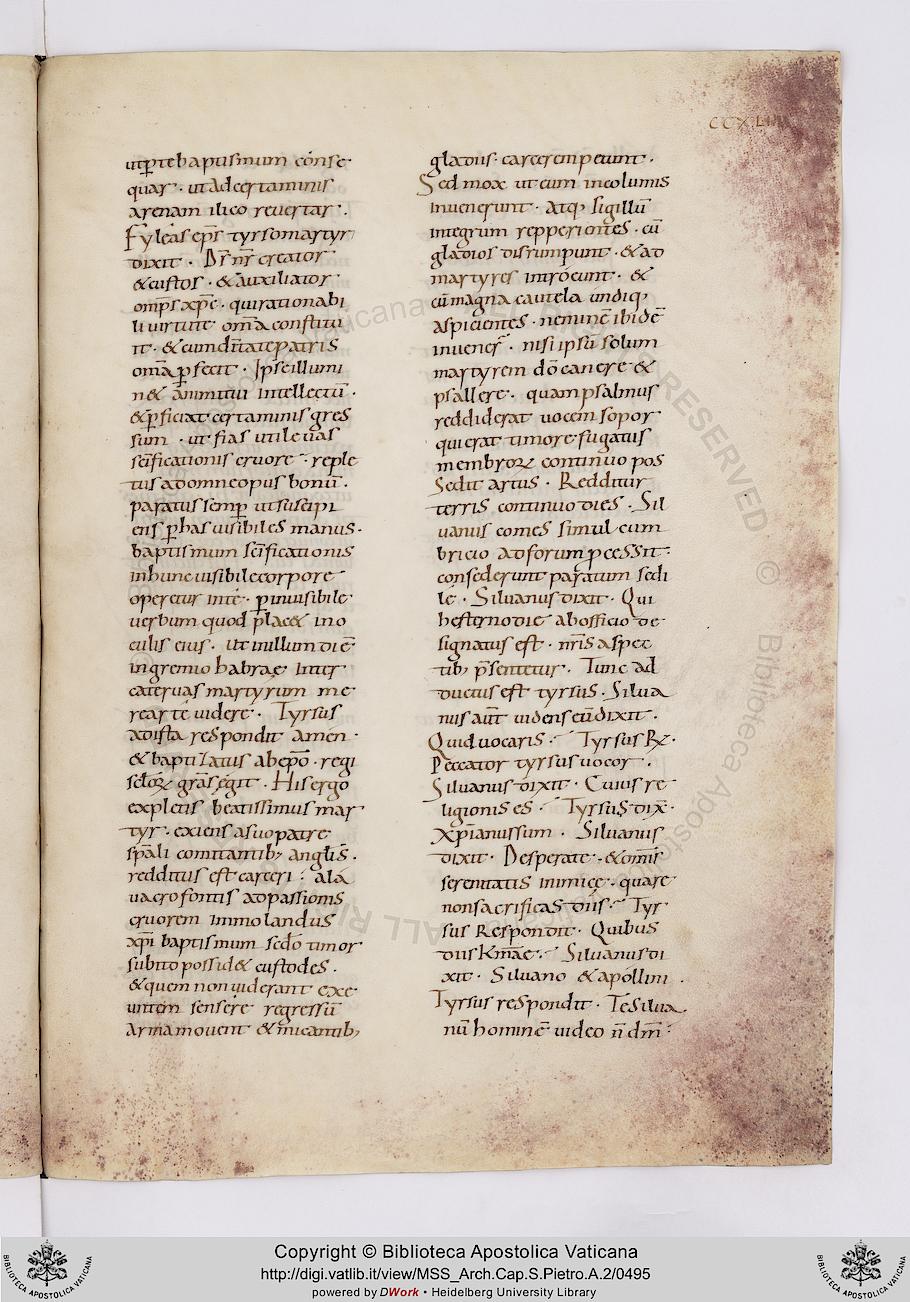 CCXLIIII
ut p̲ te baptismum conse
quar · ut ad certaminis
arenam ilico revertar ·
Fyleas ep̄s tyrso martyr
dixit · D̄s n̄r creator
& custos · & auxiliator
omp̄s xp̄e · qui rationabi
li virtute om̄a constitu
it · & cum dn̄tate patris
om̄a p̲fecit · Ipse illumi
n& animi tui intellectū ·
& p̲ficiat certaminis gres
sum · ut fias utile vas
sc̄ificationis cruore · reple
tus ad omne opus bonū ·
paratus semp̲ ut suscipi
ens p̲ has visibiles manus ·
baptismum sc̄ificationis
in hunc visibile corpore
operetur in te · p̲ invisibile
verbum quod plac& in o
culis eius · ut in illum diē
in gremio habrae inter
catervas martyrum me
rear te videre · Tyrsus
ad ista respondit amen ·
& baptizatus ab ep̄o · regi
sc̄lorꝝ gr̄as egit · His ergo
expletis beatissimus mar
tyr · exiens a suo patre
sp̄ali comitantib; angl̄is ·
redditus est carceri · a la
vacro fontis ad passionis
cruorem immolandus
xp̄i baptismum sed o timor
subito possid& custodes ·
& quem non viderant exe
untem sensere regressū
arma movent & micantib;
gladiis · carcerem petunt ·
Sed mox ut eum incolumis
invenerunt · atq; sigillū
integrum repperientes · cū
gladios disrumpunt · & ad
martyres introeunt · &
cū magna cautela undiq;
aspicientes · neminē ibidē
invener̄ · nisi ipsū solum
martyrem dō canere &
psallere · quam psalmus
reddiderat vocem sopor
qui erat timore fugatus
membrorꝝ continuo pos
sedit artus · Redditur
terris continuo dies · Sil
vanus comes simul cum
bricio ad forum p̲cessit ·
consederunt paratum sedi
le · Silvanus dixit · Qui
hesterno die ab officio de
signatus est · nr̄is aspec
tib; p̄sentetur · Tunc ad
ductus est tyrsus · Silva
nus aūt videns eū dixit ·
Quid vocaris · Tyrsus R̷x ·
Peccator tyrsus vocor ·
Silvanus dixit · Cuius re
ligionis es · Tyrsus dix̄ ·
Xp̄ianus sum · Silvanus
dixit · Desperate · & om̄is
serenitatis inimice · quare
non sacrificas diis · Tyr
sus Respondit · Quibus
diis Km̄ae · Silvanus di
xit · Silvano & apollini ·
Tyrsus respondit · Te silva
nū hominē video n̄ dm̄ ·
Copyright © Biblioteca Apostolica Vaticana
http://digi.vatlib.it/view/MSS_Arch.Cap.S.Pietro.A.2/0495
powered by DWork • Heidelberg University Library